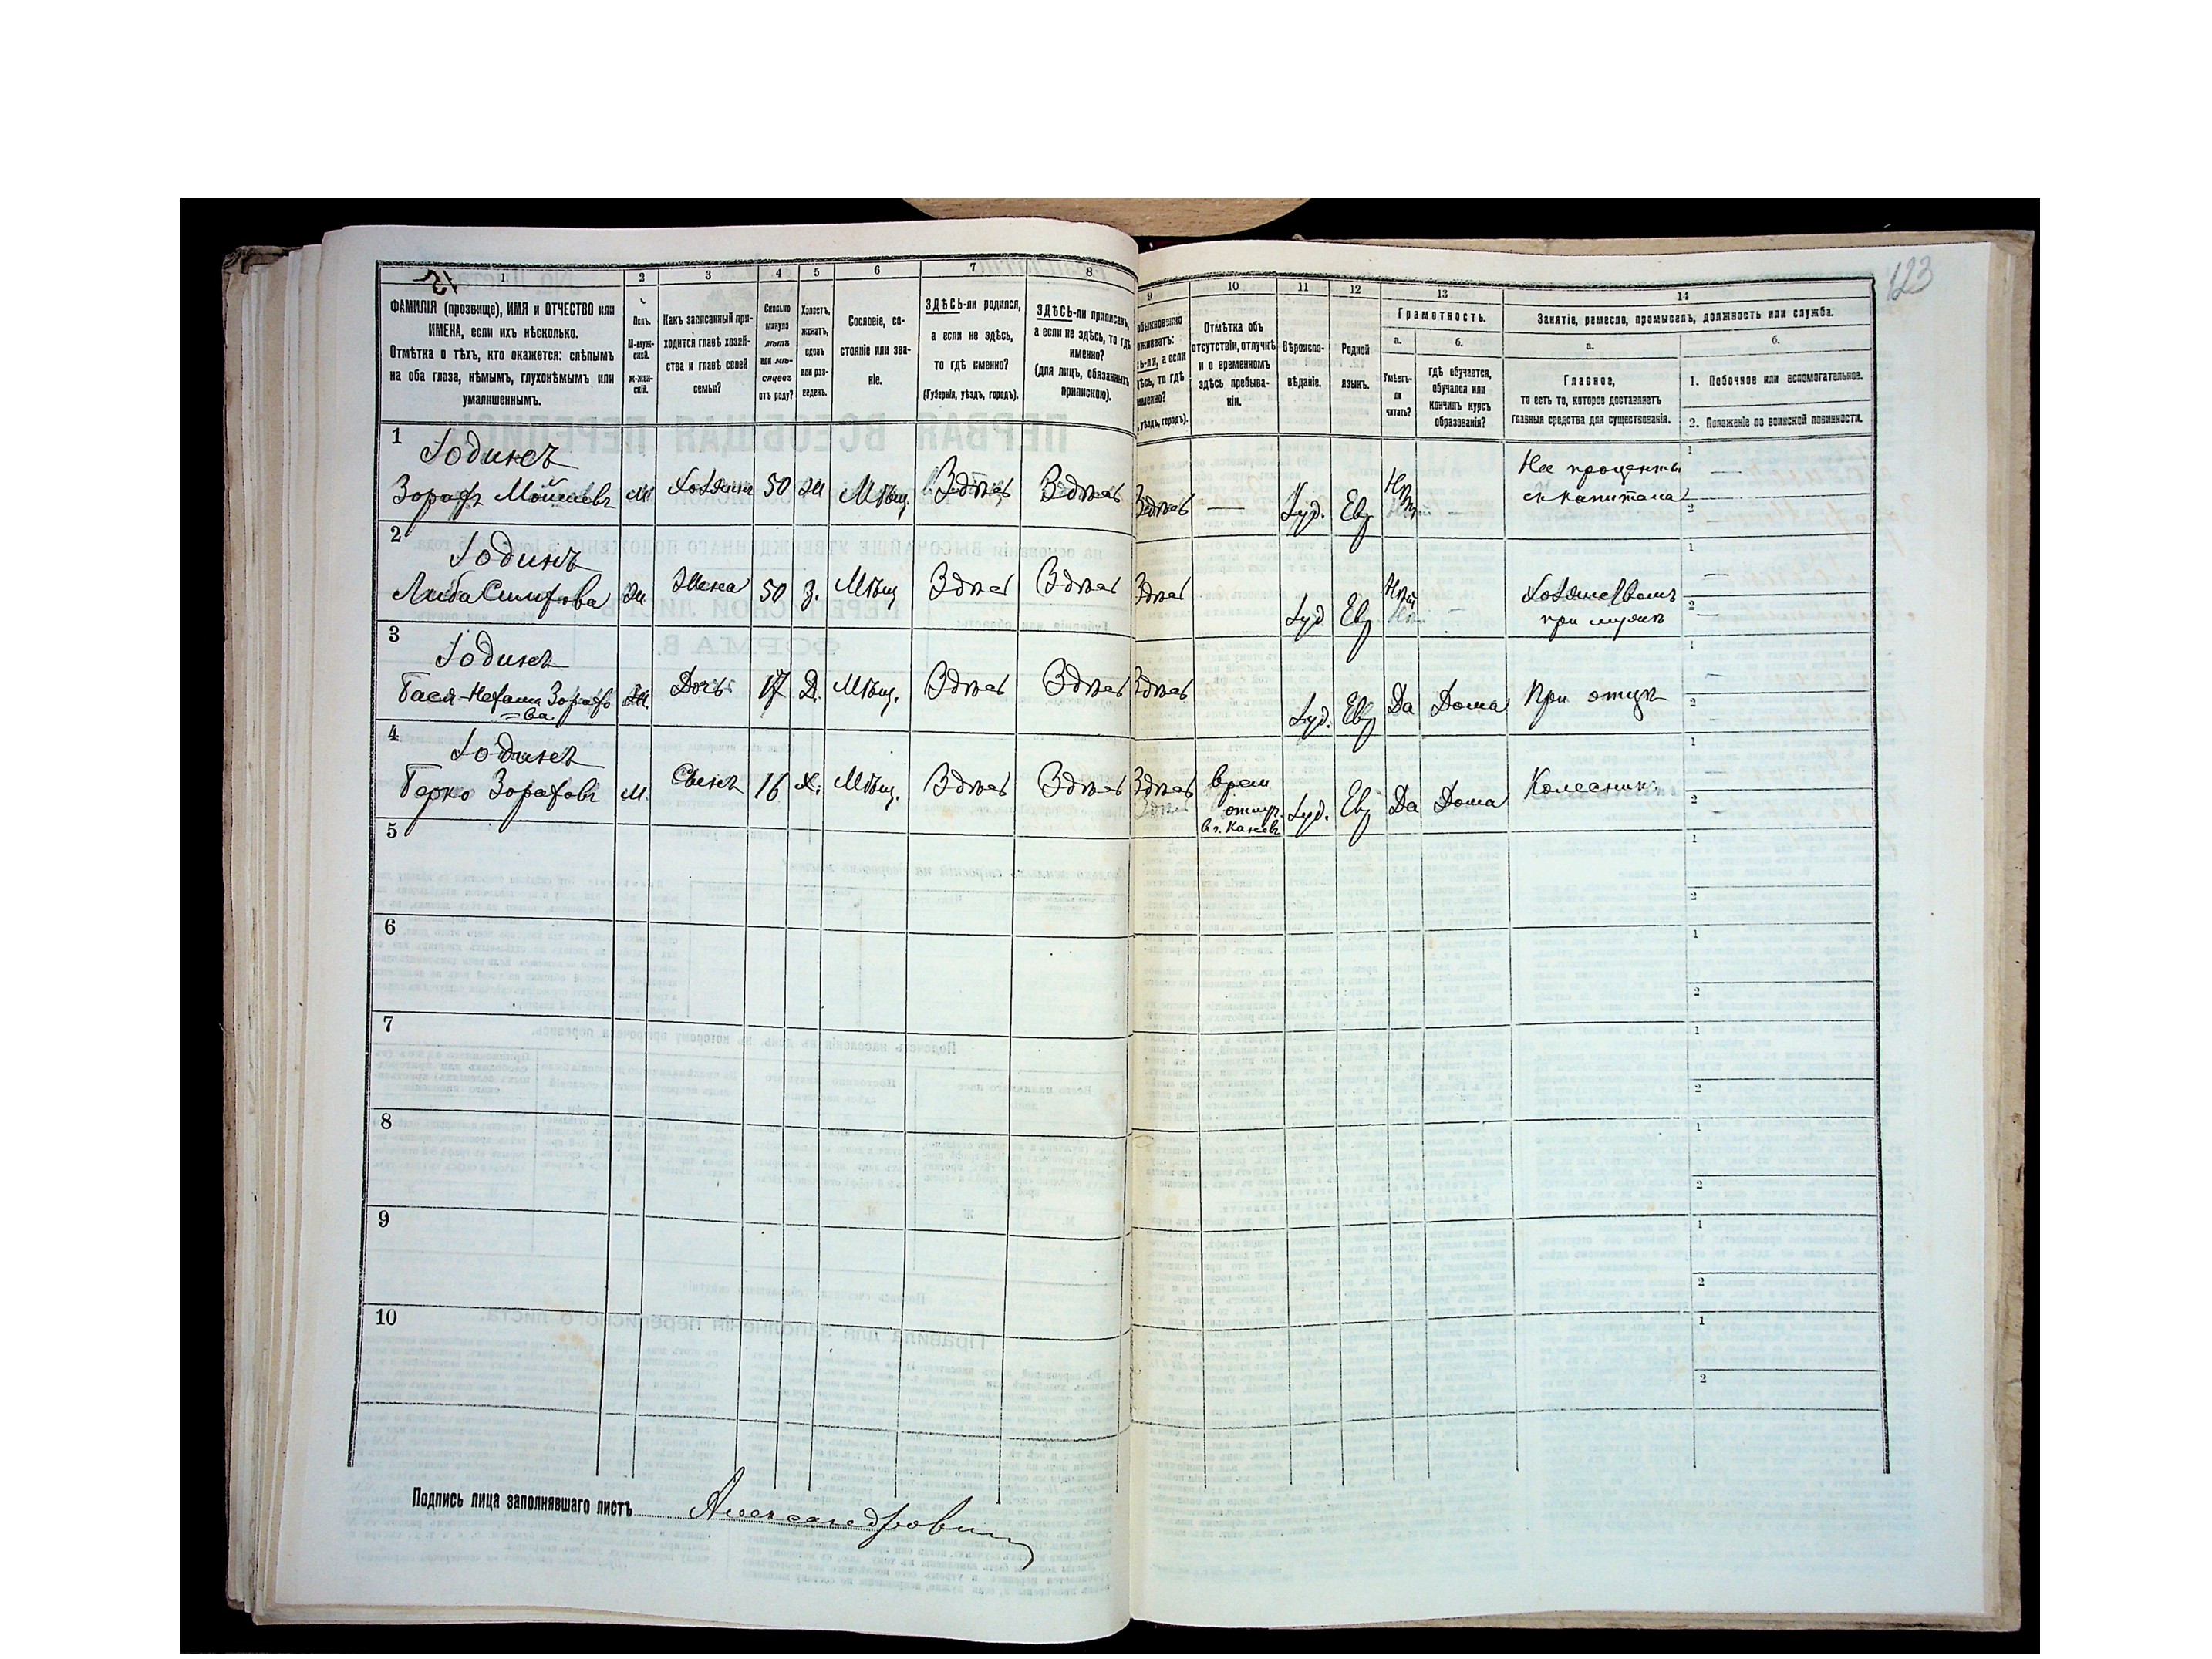 123
1 2 3 4 5 6 7 8
ФАМИЛІЯ (прозвище), ИМЯ и ОТЧЕСТВО или
ИМЕНА, если ихъ нѣсколько.
Отмѣтка о тѣхъ, кто окажется: слѣпымъ
на оба глаза, нѣмымъ, глухонѣмымъ или
умалишеннымъ.
Полъ.
М-муж-
ской.
Ж-жен-
скій.
Какъ записанный при-
ходится главѣ хозяй-
ства и главѣ своей
семьи?
Сколько
минуло
лѣтъ
или мѣ-
сяцевъ
отъ роду?
Холостъ,
женатъ,
вдовъ
или раз-
веденъ.
Сословіе, со-
стояніе или зва-
ніе.
ЗДѢСЬ-ли родился,
а если не здѣсь,
то гдѣ именно?
(Губернія, уѣздъ, городъ).
ЗДѢСЬ-ли приписанъ,
а если не здѣсь, то гдѣ
именно?
(для лицъ, обязанныхъ
припискою).
9 10 11 12 13 14
обыкновенно
а если
то гдѣ
именно?
уѣздъ, городъ).
Отмѣтка объ
отсутствіи, отлучкѣ
и о временномъ
здѣсь пребыва-
ніи.
Вѣроиспо-
вѣданіе.
Родной
языкъ.
Грамотность.
а.
Умѣетъ-
ли
читать?
б.
гдѣ обучается,
обучался или
кончилъ курсъ
образованія?
Занятіе, ремесло, промыселъ, должность или служба.
а.
Главное,
то есть то, которое доставляетъ
главныя средства для существованія.
б.
1. Побочное или вспомогательное.
2. Положеніе по воинской повинности.
1 Іодинъ
Зорахъ Мойшевъ М Хозяинъ 50 Ж Мѣщ. Здѣсь Здѣсь Здѣсь — Іуд. Евр Нѣтъ — На проценты
съ капитала
2 Іодинъ
Либа Ж Жена 50 З. Мѣщ Здѣсь Здѣсь Здѣсь Іуд Евр — Хозяйствомъ
при мужѣ
3 Іодинъ
Бася-Нехама Зорахо
=ва Ж. Дочь 17 Д. Мѣщ. Здѣсь Здѣсь Здѣсь Іуд. Евр Да Дома При отцѣ
4 Іодинъ
Берко Зораховъ М. Сынъ 16 Х. Мѣщ. Здѣсь Здѣсь Здѣсь врем
отлуч.
въ г. Каневъ Іуд. Евр Да Дома Колесник.
5
6
7
8
9
10
Подпись лица заполнявшаго листъ